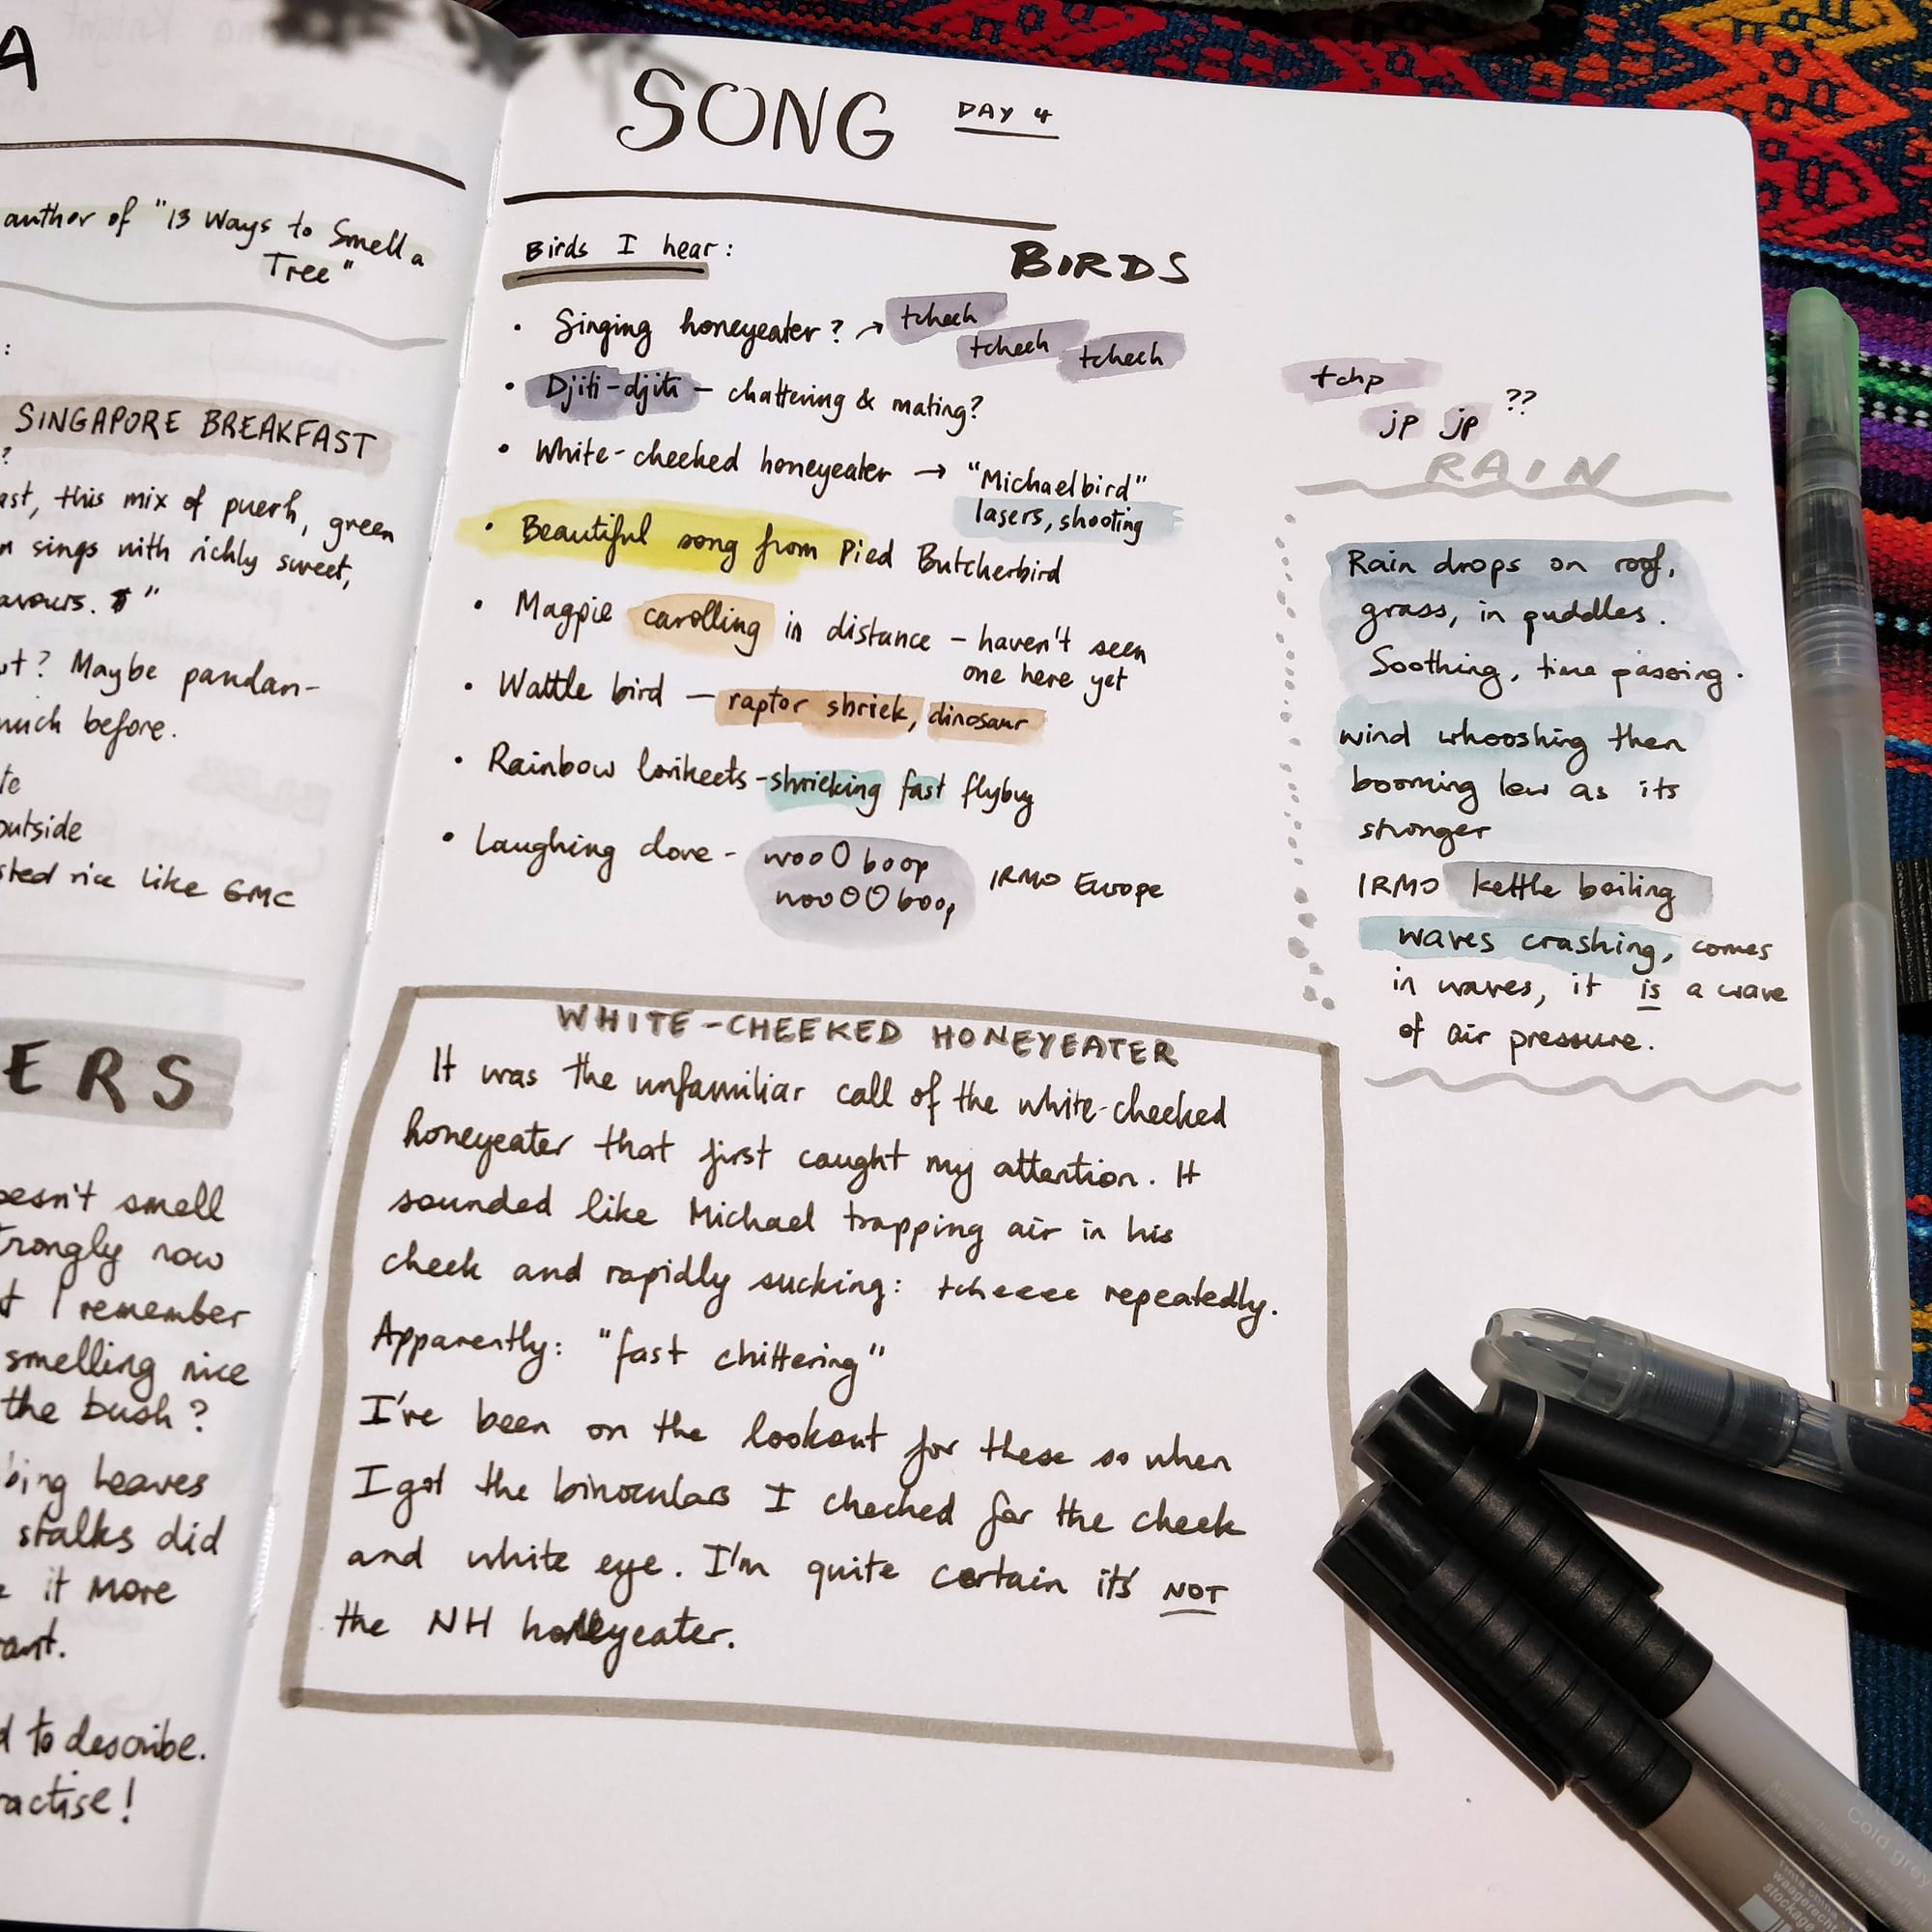 A
author of "13 Ways to Smell a
Tree"
:
SINGAPORE BREAKFAST
?
ast, this mix of puerh, green
n sings with richly sweet,
avours."
ut? Maybe pandan-
much before.
te
outside
sted rice like GMC
ERS
oesn't smell
trongly now
t I remember
smelling nice
the bush?
bing leaves
stalks did
it more
ant.
d to describe.
ractise!
SONG DAY 4
Birds I hear: BIRDS
• Singing honeyeater? → tchech
tchech tchech
• Djiti-djiti – chattering & mating?
• White-cheeked honeyeater → "Michaelbird"
lasers, shooting
• Beautiful song from Pied Butcherbird
• Magpie carolling in distance – haven't seen
one here yet
• Wattle bird – raptor shriek, dinosaur
• Rainbow lorikeets - shrieking fast flybys
• Laughing dove - wooO boop
wooOO boop IRMO Europe
tchp
jp jp ??
RAIN
Rain drops on roof,
grass, in puddles.
Soothing, time passing.
wind whooshing then
booming low as its
stronger
IRMO kettle boiling
waves crashing, comes
in waves, it is a wave
of air pressure.
WHITE-CHEEKED HONEYEATER
It was the unfamiliar call of the white-cheeked
honeyeater that first caught my attention. It
sounded like Michael trapping air in his
cheek and rapidly sucking: tcheeee repeatedly.
Apparently: "fast chittering"
I've been on the lookout for these so when
I got the binoculars I checked for the cheek
and white eye. I'm quite certain it's NOT
the NH honeyeater.
Cold grey